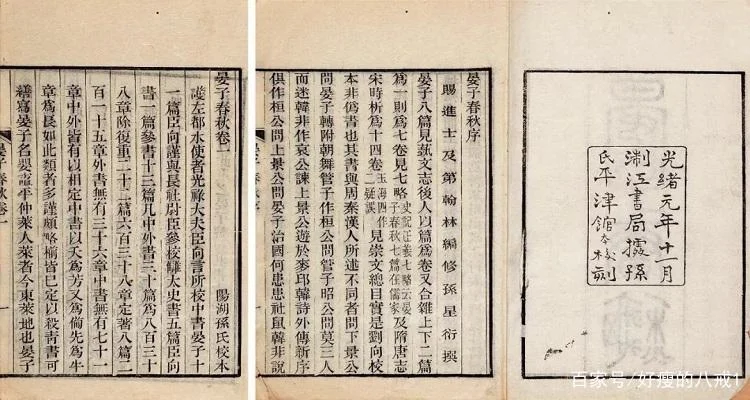 光緒元年十一月
浙江書局據孫
氏平津館本校刻
晏子春秋序
賜進士及第翰林編修孫星衍撰
晏子八篇見藝文志後人以篇為卷又合雜上下二篇
為一則為七卷見七略史記正義七略云晏子春秋七篇在儒家及隋唐志
宋時析為十四卷玉海四作二疑誤見崇文總目實是劉向校
本非偽書也其書與周秦漢人所述不同者問下景公
問晏子轉附朝舞管子作桓公問管子昭公問莫三人
而迷韓非作哀公諫上景公遊於麥邱韓詩外傳新序
俱作桓公問上景公問晏子治國何患患社鼠韓非說
晏子春秋序
晏子春秋卷一
陽湖孫氏校本
護左都水使者光祿大夫臣向言所校中書晏子十
一篇臣向謹與長社尉臣參校讎太史書五篇臣向
書一篇參書十三篇凡中外書三十篇為八百三十
八章除復重二十二篇六百三十八章定著八篇二
百一十五章外書無有三十六章中書無有七十一
章中外皆有以相定中書以夭為芳又為備先為牛
章為長如此類者多謹頗略椾皆已定以殺青書可
繕寫晏子名嬰諡平仲萊人萊者今東萊地也晏子
晏子春秋卷一
百家号/好瘦的八戒1